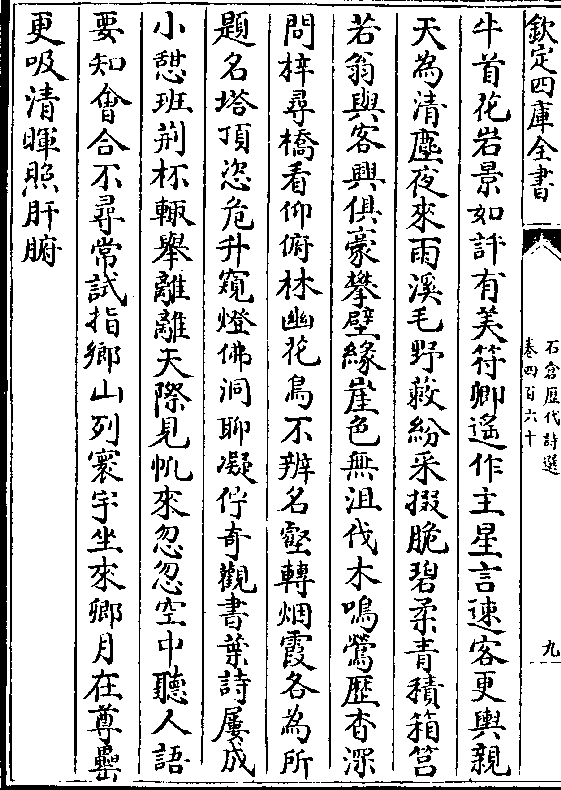 欽定四庫全書
石倉歷代詩選
卷四百六十
九
牛首花岩景如許有美符卿遥作主星言速客更輿親
天為清塵夜來雨溪毛野蔌紛采掇脆碧柔青積箱筥
若翁與客興俱豪攀壁緣崖色無沮伐木鳴鶯歷杳深
問梓尋橋看仰俯林幽花鳥不辨名壑轉烟霞各為所
題名塔頂恣危升窺燈佛洞聊凝佇奇觀書葉詩屢成
小憇班荆杯輙舉離離天際見帆來忽忽空中聽人語
要知會合不尋常試指鄉山列寰宇坐來卿月在尊罍
更吸清暉照肝腑